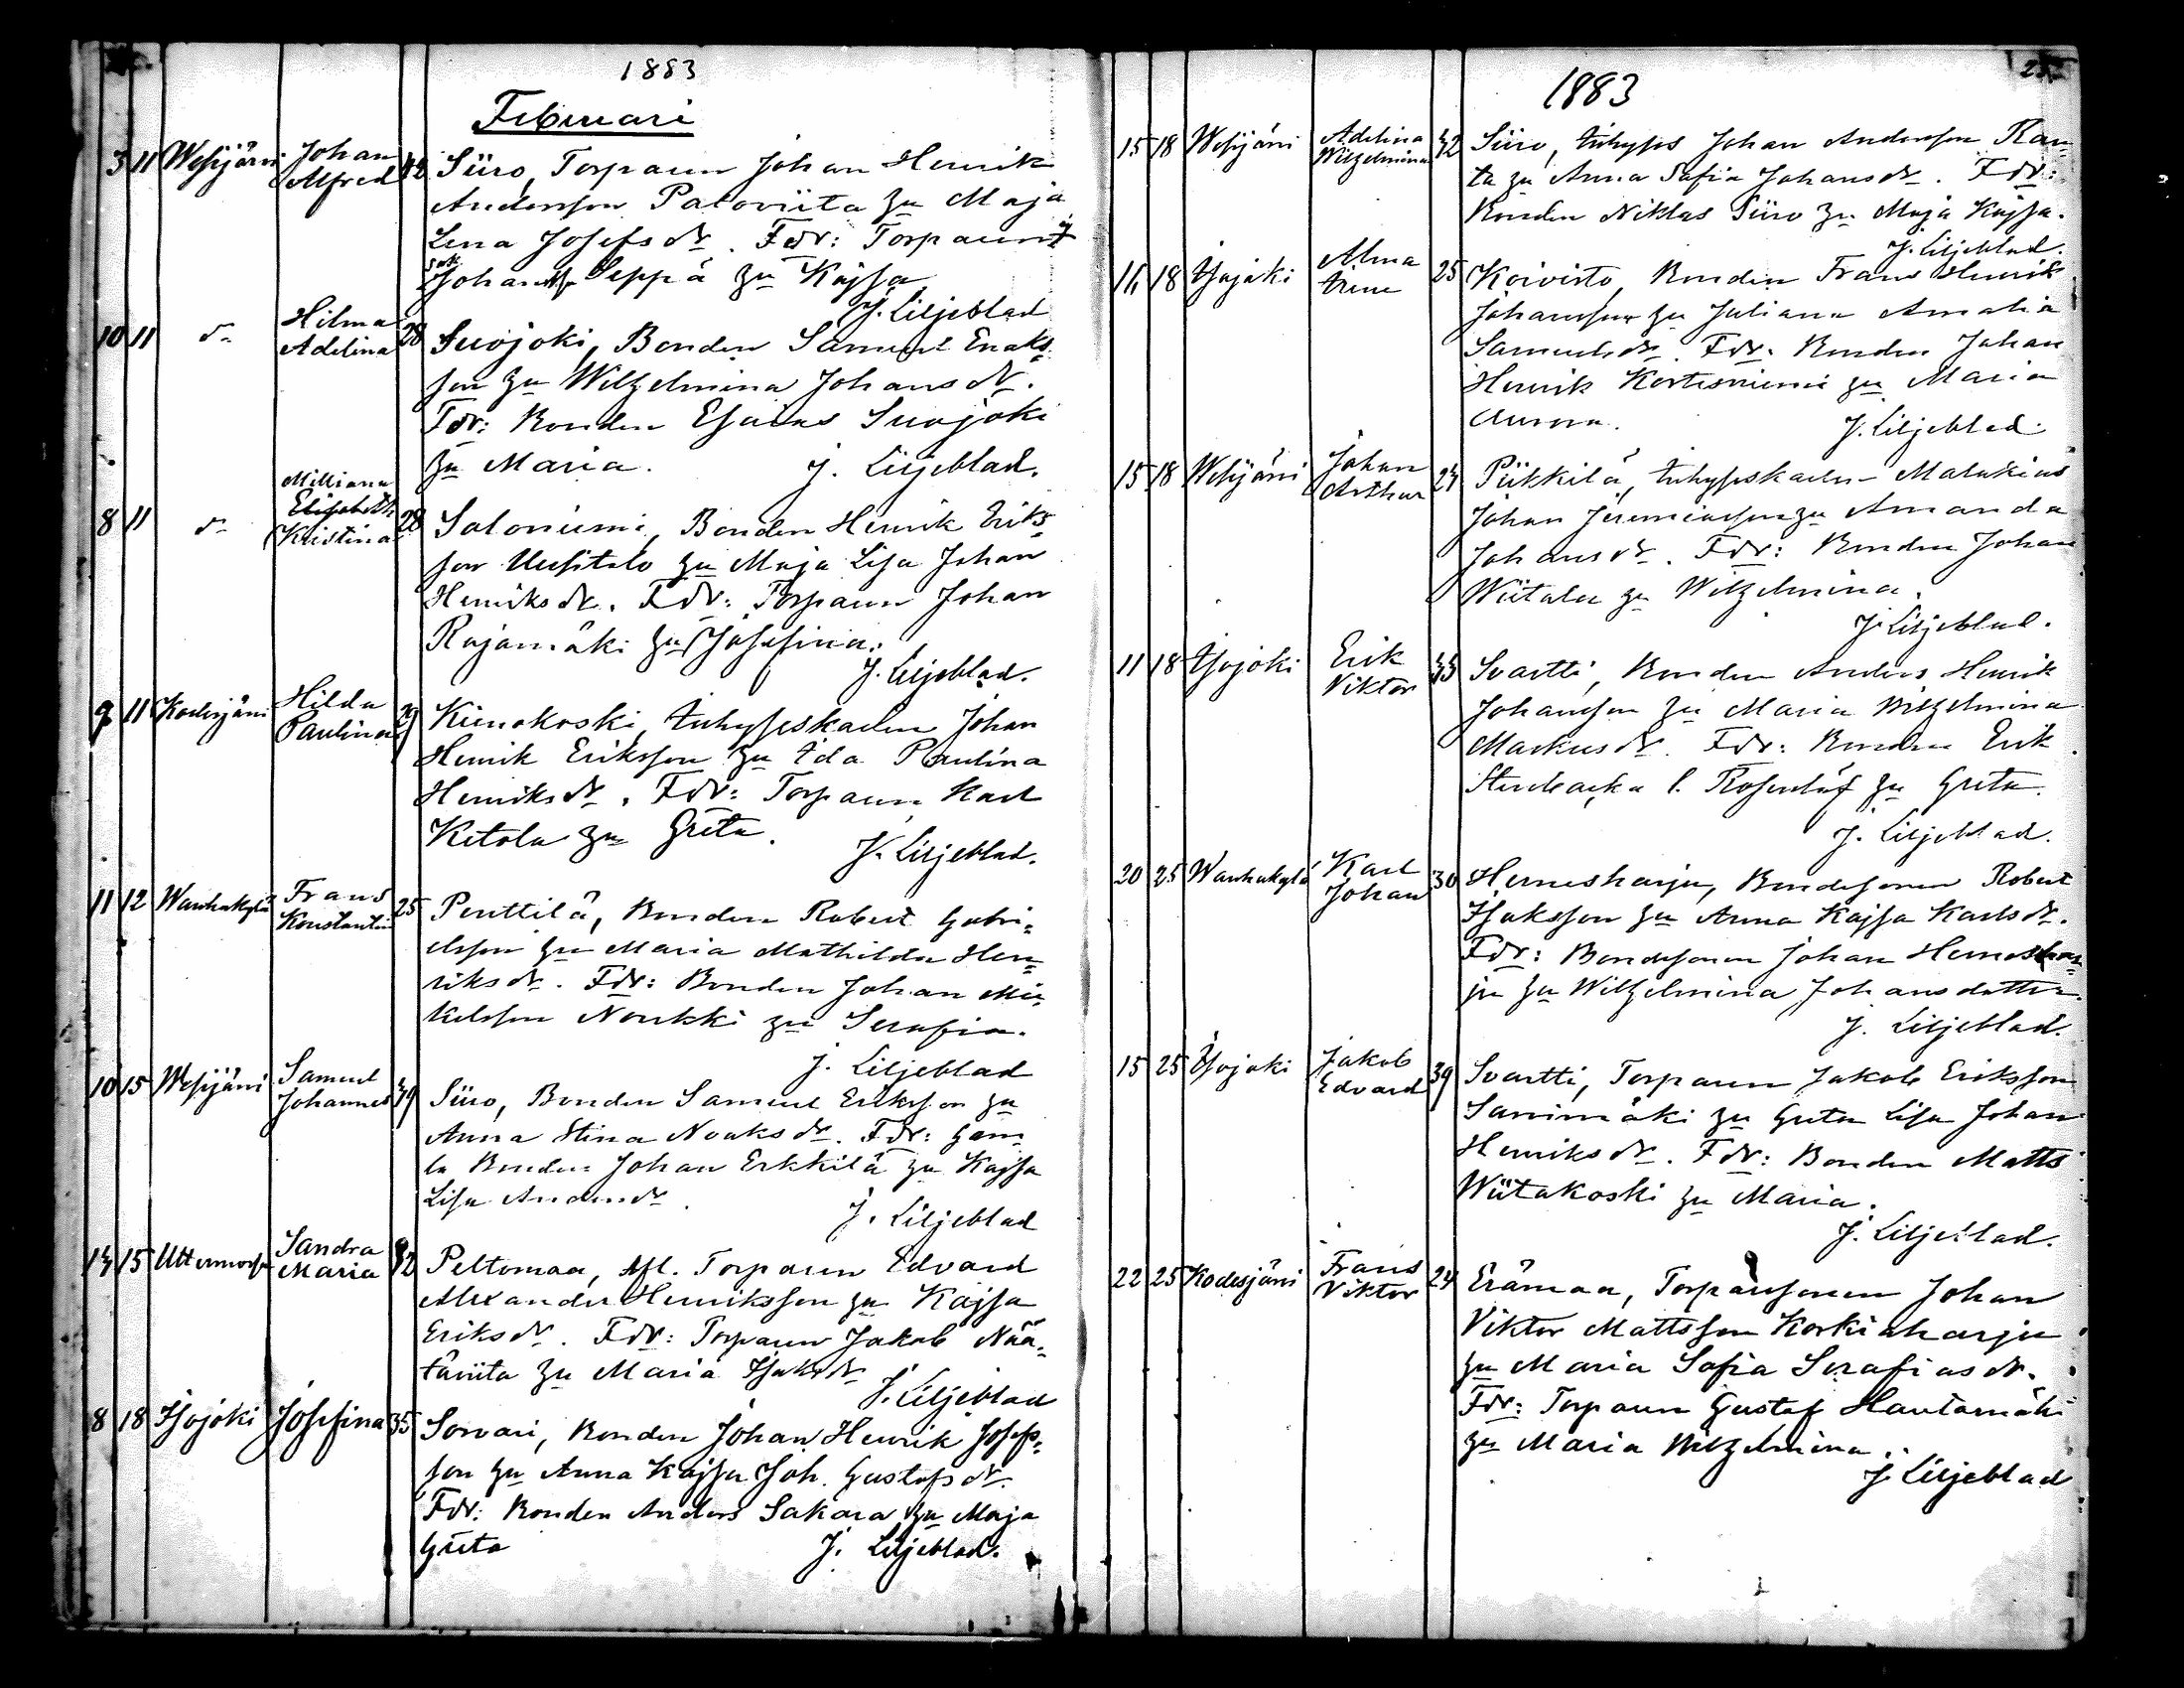 1883
Februari
3 11 Wesijärvi Johan Alfred 42 Siiro, Torparen Johan Henrik
Andersson Paloviita hu Maja
Lena Josefsdr. Fdr: Torparens
son Johan Seppä hu Kajsa
J. Liljeblad
10 11 do Hilma Adelina 28 Suojoki, Bonden Samuel Enoks
son hu Wilhelmina Johansdr.
Fdr: Bonden Esaias Suojoki
hu Maria. J. Liljeblad.
8 11 do Milliana Elisabeth Kristina 28 Saloniemi, Bonden Henrik Eriks
son Uusitalo hu Maja Lisa Johan
Henriksdr. Fdr: Torparen Johan
Rajamäki hu Josefina.
J. Liljeblad.
9 11 Kodesjärvi Hilda Paulina 29 Kienokoski, inhyseskarlen Johan
Henrik Eriksson hu Ida Paulina
Henriksdr. Fdr: Torparen Karl
Ketola hu Greta.
J. Liljeblad.
11 12 Wanhakylä Frans Konstantin 25 Penttilä, Bonden Robert Gabri-
elsson hu Maria Mathilda Hen-
riksdr. Fdr: Bonden Johan Mi-
kelsson Nourkki hu Serafia.
J. Liljeblad
10 15 Wesijärvi Samuel Johannes 39 Siiro, Bonden Samuel Eriksson hu
Anna Stina Noaksdr. Fdr: Gam-
la Bonden Johan Erkkilä hu Kajsa
Lisa Andersdr.
J. Liljeblad
14 15 Uttermossa Sandra Maria 42 Peltomaa, Afl. Torparen Edvard
Alexander Henriksson hu Kajsa
Eriksdr. Fdr: Torparen Jakob Nää-
täviita hu Maria Isaksdr
J. Liljeblad
8 18 Isojoki Josefina 35 Sorvari, Bonden Johan Henrik Josefs-
son hu Anna Kajsa Joh. Gustafsdr.
Fdr: Bonden Anders Sakara hu Maja
Greta J. Liljeblad.
1883
15 18 Wesijärvi Adelina Wilhelmina 32 Siiro, inhyses Johan Andersson Ran-
ta hu Anna Sofia Johansdr. Fdr:
Bonden Niklas Siiro hu Maja Kajsa.
J. Liljeblad.
16 18 Isojoki Alma Irene 25 Koivisto, Bonden Frans Henrik
Johansson hu Juliana Amalia
Samuelsdr. Fdr: Bonden Johan
Henrik Kortesniemi hu Maria
Aurora. J. Liljeblad.
15 18 Wesijärvi Johan Arthur 24 Piikkilä, inhyseskarlen Malakias
Johan Jeremiasson hu Amanda
Johansdr. Fdr: Bonden Johan
Wiitala hu Wilhelmina.
J. Liljeblad.
11 18 Isojoki Erik Viktor 35 Svartti, Bonden Anders Henrik
Johansson hu Maria Wilhelmina
Markusdr. Fdr: Bonden Erik
Stenbacka l. Rosenlöf hu Greta.
J. Liljeblad.
20 25 Wanhakylä Karl Johan 30 Hernesharju, Bondesonen Robert
Isaksson hu Anna Kajsa Karlsdr.
Fdr: Bondesonen Johan Hernes-har-
ju hu Wilhelmina Johansdotter.
J. Liljeblad.
15 25 Isojoki Jakob Edvard 39 Svartti, Torparen Jakob Eriksson
Sarvimäki hu Greta Lisa Johan
Henriksdr. Fdr: Bonden Matts
Wiitakoski hu Maria.
J. Liljeblad.
22 25 Kodesjärvi Frans Viktor 24 Erämaa, Torparsonen Johan
Viktor Mattsson Korkiaharju
hu Maria Sofia Serafiasdr.
Fdr: Torparen Gustaf Hautamäki
hu Maria Wilhelmina.
J. Liljeblad